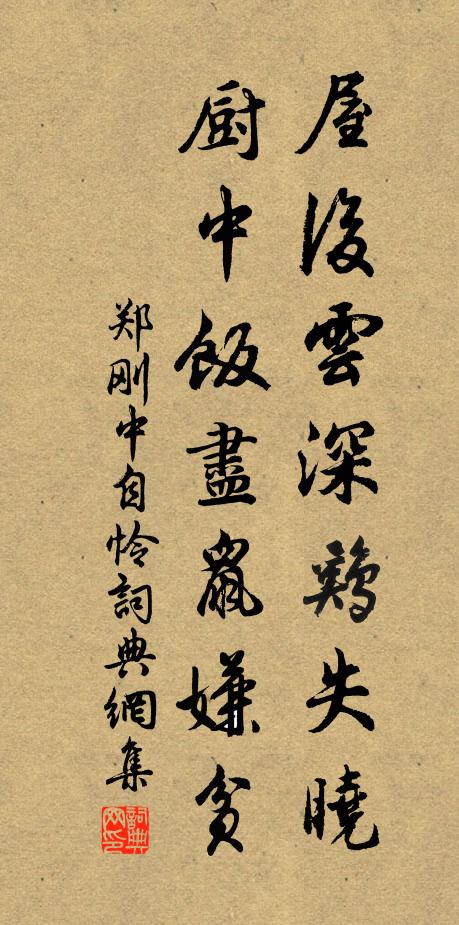 屋後雲深鷄失曉
厨中飯盡鼠嫌貧
郑刚中自怜詞典網集
詞典网印